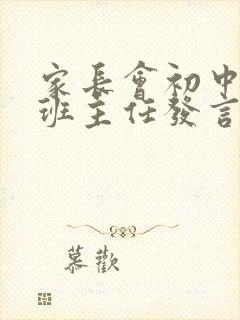 家長會初中
班主任發言
慕歡